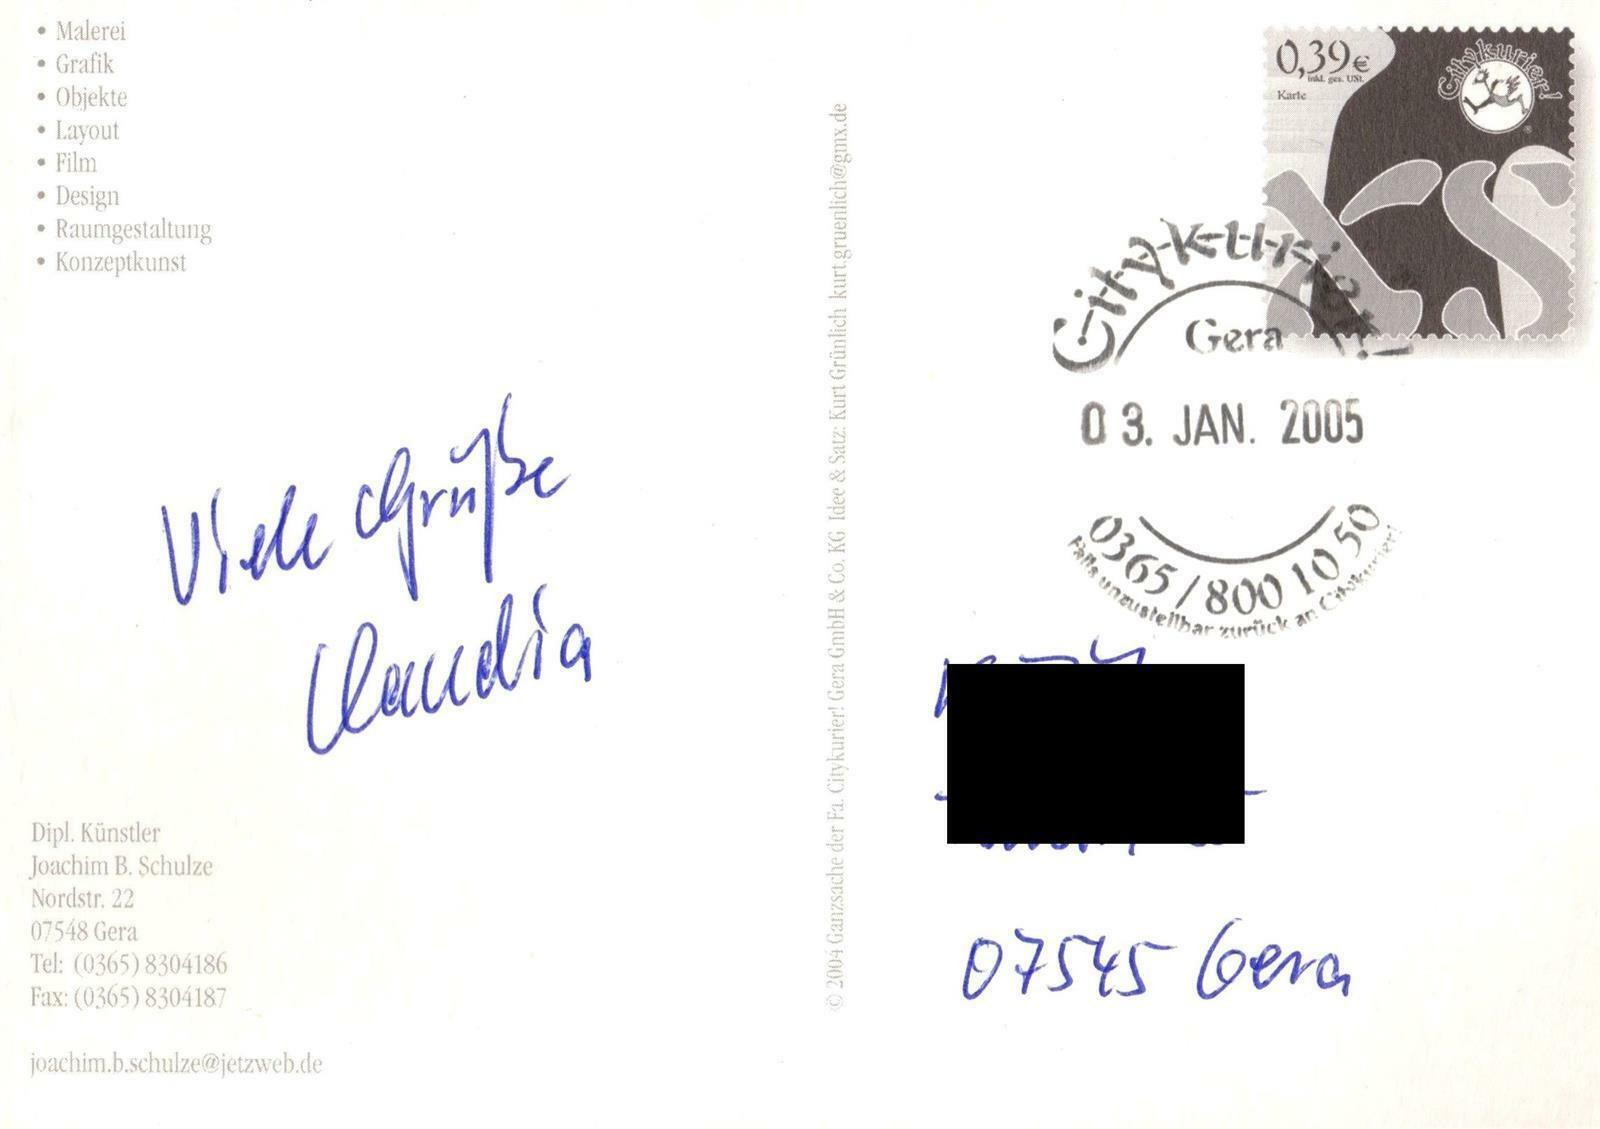 • Malerei
• Grafik
• Objekte
• Layout
• Film
• Design
• Raumgestaltung
• Konzeptkunst
Viele Grüße
Claudia
Dipl. Künstler
Joachim B. Schulze
Nordstr. 22
07548 Gera
Tel: (0365) 8304186
Fax: (0365) 8304187
joachim.b.schulze@jetzweb.de
© 2004 Ganzsache der Fa. Citykurier! Gera GmbH & Co. KG Idee & Satz: Kurt Grünlich kurt.gruenlich@gmx.de
0,39€
inkl. ges. USt.
Karte
Citykurier!
Citykurier!
Gera
03. JAN. 2005
0365/800 10 50
Falls unzustellbar zurück an Citykurier!
07545 Gera